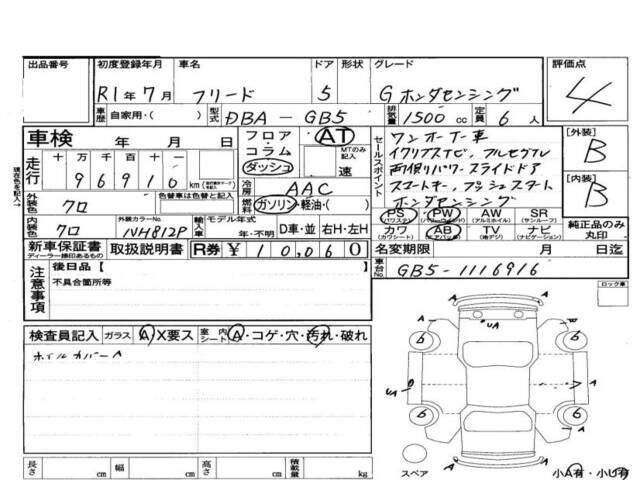 出品番号 初度登録年月 車名 ドア 形状 グレード 評価点
R1年7月 フリード 5 Gホンダセンシング 4
車歴 自家用・( ) 型式 DBA-GB5 排気量 1500 cc 定員 6人
車検 年 月 日
フロア・コラム・ダッシュ AT MTのみ記入 速
セールスポイント
ワンオーナー車
イクリプスナビ、フルセグTV
両側パワースライドドア
スマートキー、プッシュスタート
ホンダセンシング
[外装] B
[内装] B
走行 十 万 千 百 十 一
96910 km
現在色を記入→
冷房 AAC
燃料 ガソリン・軽油・( )
外装色 クロ 色替車は色替と記入
内装色 クロ 外装カラーNo. NH812P
輸入車 モデル年式 年・不明 D車・並 右H・左H
PS (パワステ) PW (パワーウインド) AW (アルミホイル) SR (サンルーフ)
カワ (カワシート) AB (エアバック) TV (地デジ) ナビ (ナビゲーション)
純正品のみ丸印
新車保証書 ディーラー捺印あるもの 取扱説明書 R券 ¥10,060
名変期限 月 日迄
車台No. GB5-1116916
注意事項 後日品【 】
不具合箇所等
ロック車
検査員記入 ガラス A X要ス 室内シート A・コゲ・穴・汚れ・破れ
ホイルカバーA
A A
A UA A
6 6
UA A
6 6
A
スペア 小A有・小U有
長さ cm 幅 cm 高さ cm 積載量 kg